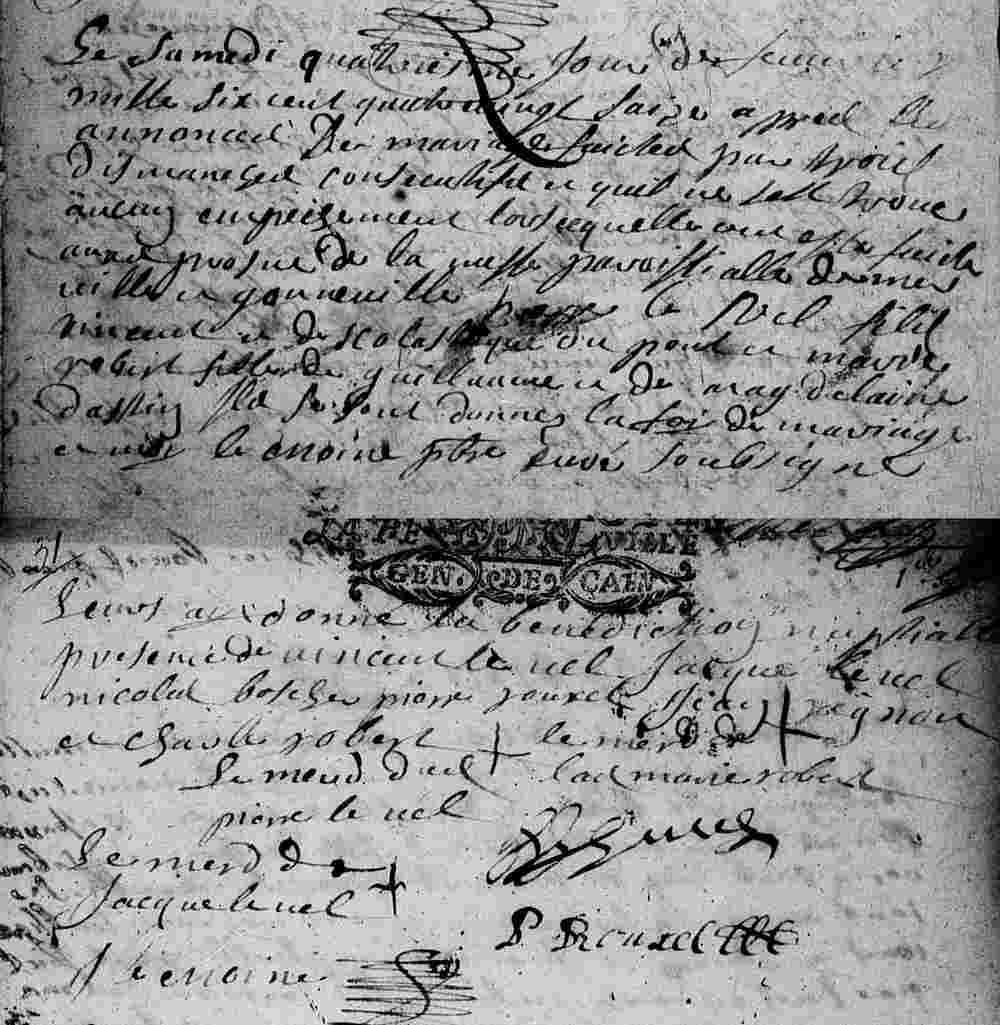 Le samedi quatriesme jour de fevrier
mille six cent quatre vingt saize appres les
annonces de mariage faictes par trois
dismanches consecutifs et quil ne sest trouve
aucun empeschement lorsequelle ont este faicte
au prosne de la messe paroissialle de mes
ville et gonneville pierre le vel filz
vincent et de scolastique du pont et marie
robert fille de guillaume et de mag delaine
dastin Ils se sont donnez la foi de mariage
et moi le moine pbre curé soubsigne
31
GEN. DE CAEN
Leurs ay donné la benediction nuptiale
presence de vincent le vel Jacque le vel
nicolas bosche pierre rouxel Jean vignon
et charle robert le merc de
Le merc du dit lad marie robert
pierre le vel
Le merc de
Jacque le vel
P Rouxel
Le moine